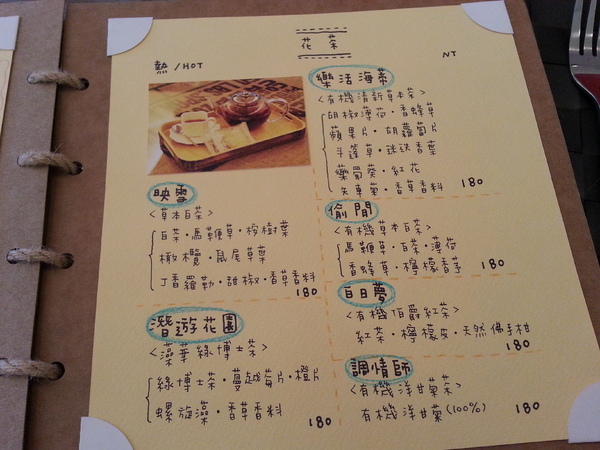 花茶
熱/HOT
NT
映雪
<草本白茶>
白茶·馬鞭草·枸樹葉
橄欖·鼠尾草葉
丁香羅勒·甜椒·香草香料
180
潛遊花園
<藻華綠博士茶>
綠博士茶·蔓越莓片·橙片
螺旋藻·香草香料
180
樂活海菜
<有機清新草本茶>
胡椒薄荷·香蜂草
蘋果片·胡蘿蔔片
斗篷草·迷迭香葉
藥蜀葵·紅花
矢車菊·香草香料 180
偷閒
<有機草本白茶>
馬鞭草·白茶·薄荷
香蜂草·檸檬香茅 180
白日夢
<有機伯爵紅茶>
紅茶·檸檬皮·天然佛手柑
180
調情師
<有機洋甘菊茶>
有機洋甘菊(100%) 180